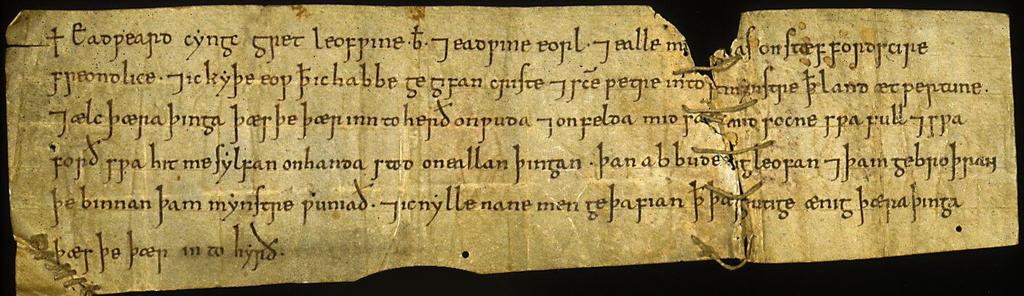 ✝ Eadƿeard cẏngc gret leofƿine .b̄. ⁊ eadƿine eorl . ⁊ ealle on stæffordscire
freondlice . ⁊ ic kẏþe eoƿ ꝥ ic habbe gegẏfan criste ⁊ sc̄e petre into ꝥ land æt pertune .
⁊ ælc þæra þinga þæs þe þær inn to herð on ƿuda ⁊ on felda mid mid socne sƿa full ⁊ sƿa
forð sƿa hit me sẏlfan on handa stod on eallan þingan . þan abbude leofan ⁊ þam gebroþran
þe binnan þam mẏnstre ƿuniað . ⁊ ic nẏlle nane men geþafian ꝥ þær ut ænig þæra þinga
þæs þe þær in to hẏrð .